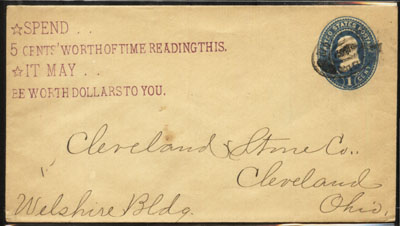 ☆SPEND . .
5 CENTS' WORTH OF TIME READING THIS.
☆IT MAY . .
BE WORTH DOLLARS TO YOU.
UNITED STATES POSTAGE
1 CENT
Cleveland Stone Co..
Cleveland
Welshire Bldg. Ohio.